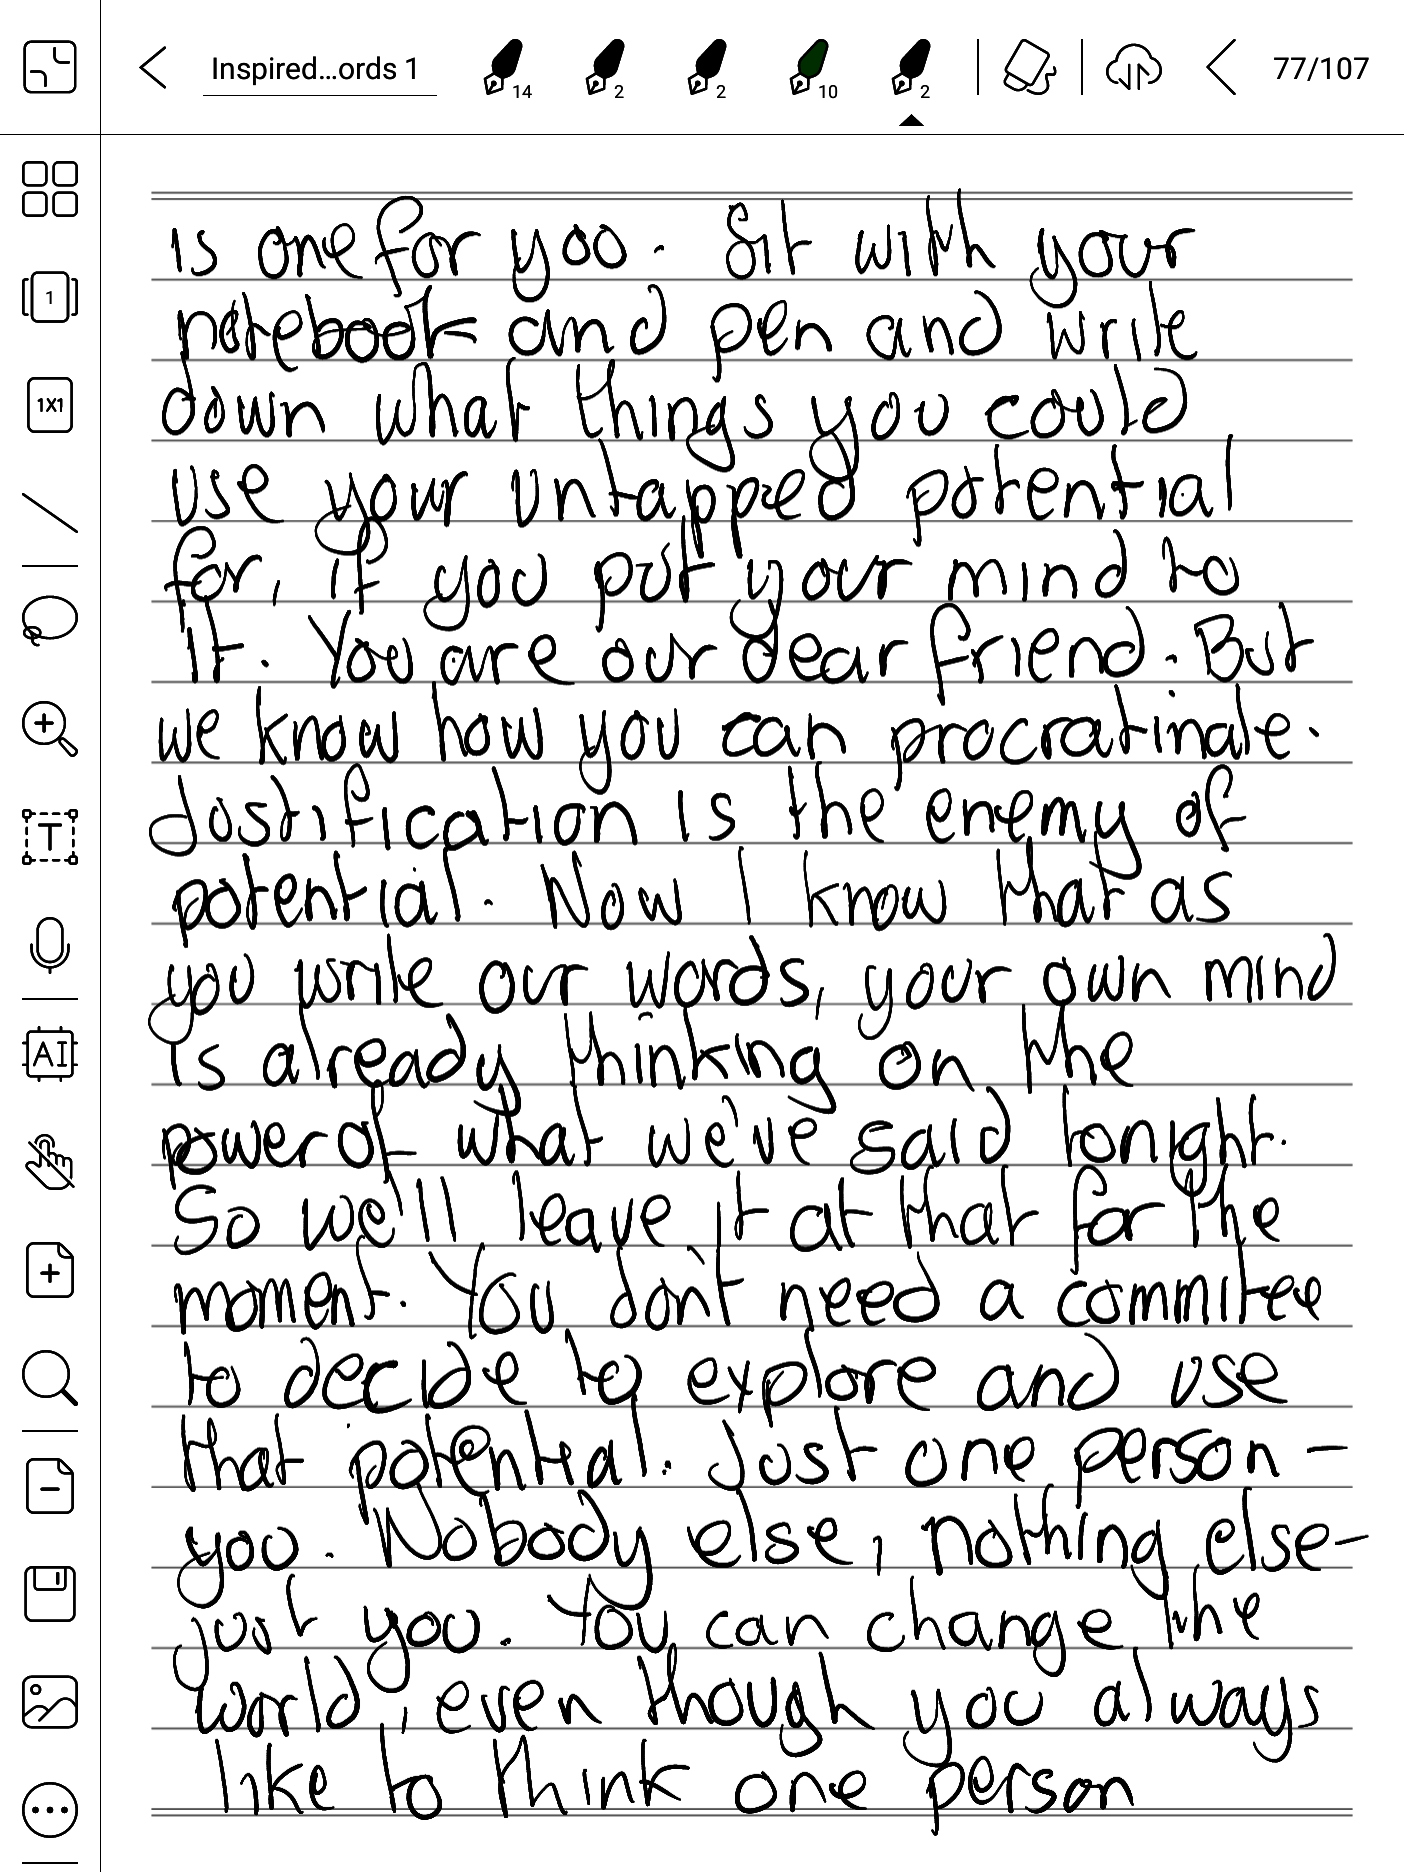 Inspired...ords 1
14
2
2
10
2
77/107
1
1X1
T
AI
is one for you. Sit with your
notebook and pen and write
down what things you could
use your untapped potential
for, if you put your mind to
it. You are our dear friend. But
we know how you can procratinate.
Justification is the enemy of
potential. Now I know that as
you write our words, your own mind
is already thinking on the
power of what we've said tonight.
So we'll leave it at that for the
moment. You don't need a commitee
to decide to explore and use
that potential. Just one person -
you. Nobody else, nothing else -
just you. You can change the
world, even though you always
like to think one person